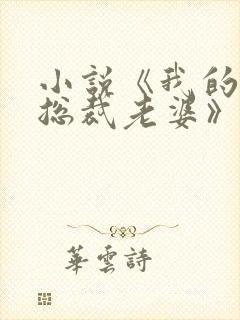 小説《我的
总裁老婆》
華雲詩